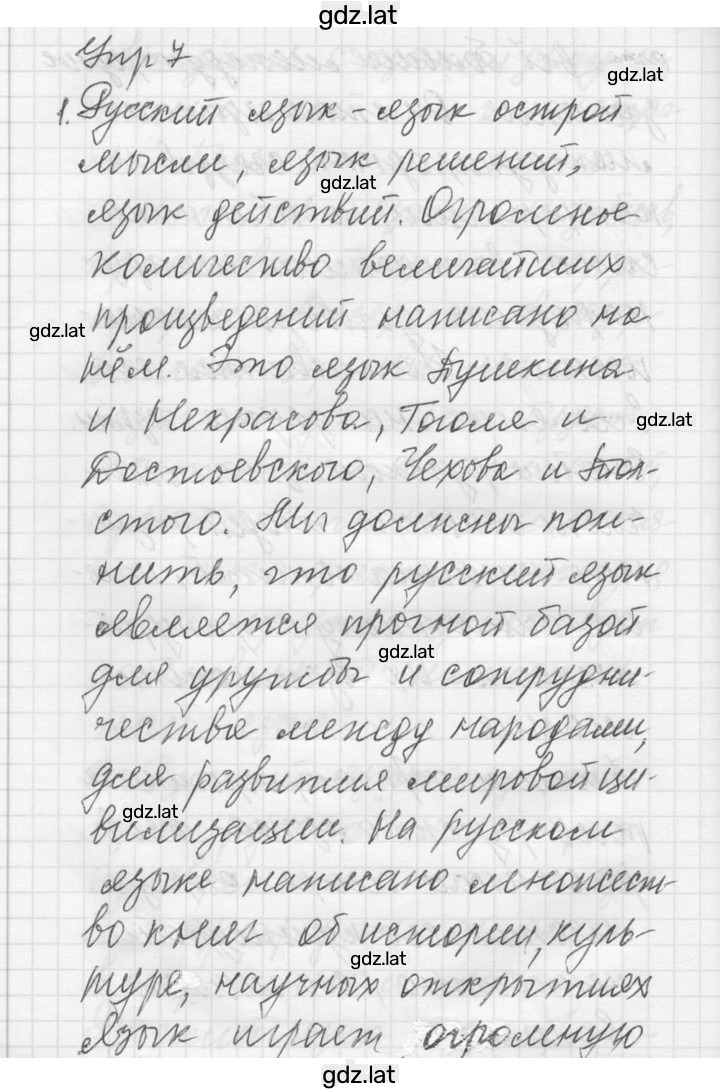 gdz.lat
Упр 7
gdz.lat
1. Русский язык - язык острой
мысли, язык решений,
gdz.lat
язык действий. Огромное
количество величайших
произведений написано на
gdz.lat
нём. Это язык Пушкина
и Некрасова, Гоголя и
gdz.lat
Достоевского, Чехова и Тол-
стого. Мы должны пом-
нить, что русский язык
является прочной базой
gdz.lat
для дружбы и сотрудни-
чества между народами,
для развития мировой ци-
gdz.lat
вилизации. На русском
языке написано множест-
во книг об истории, куль-
gdz.lat
туре, научных открытиях
Язык играет огромную
gdz.lat